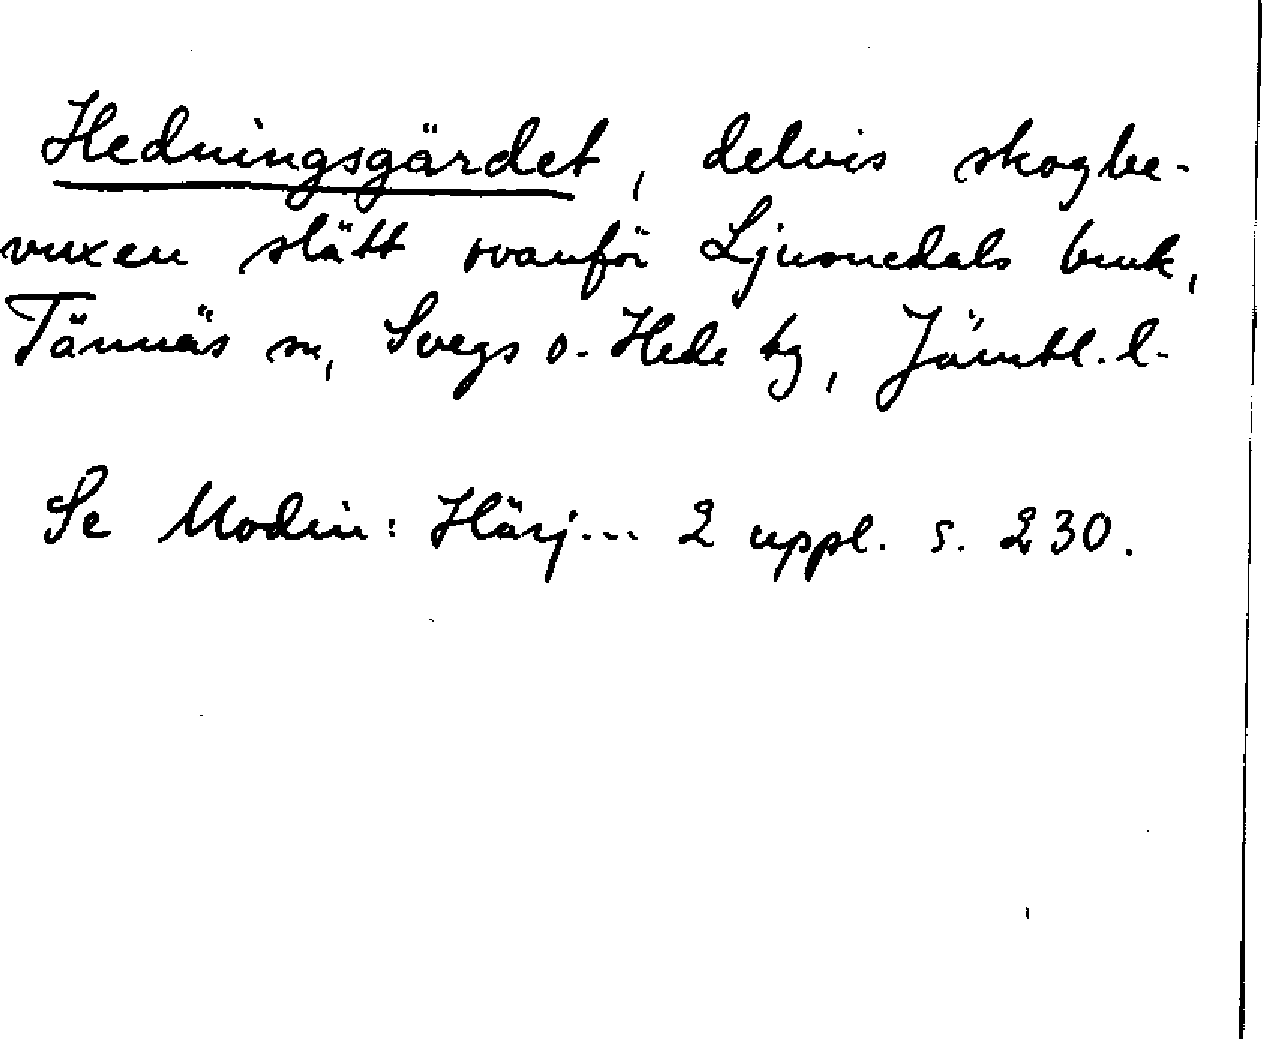 Hedningsgärdet, delvis skogbe-
vuxen slätt ovanför Ljusnedals bruk,
Tännäs sn, Svegs o. Hede tg, Jämtl. l.
Se Modin: Härj... 2 uppl. s. 230.